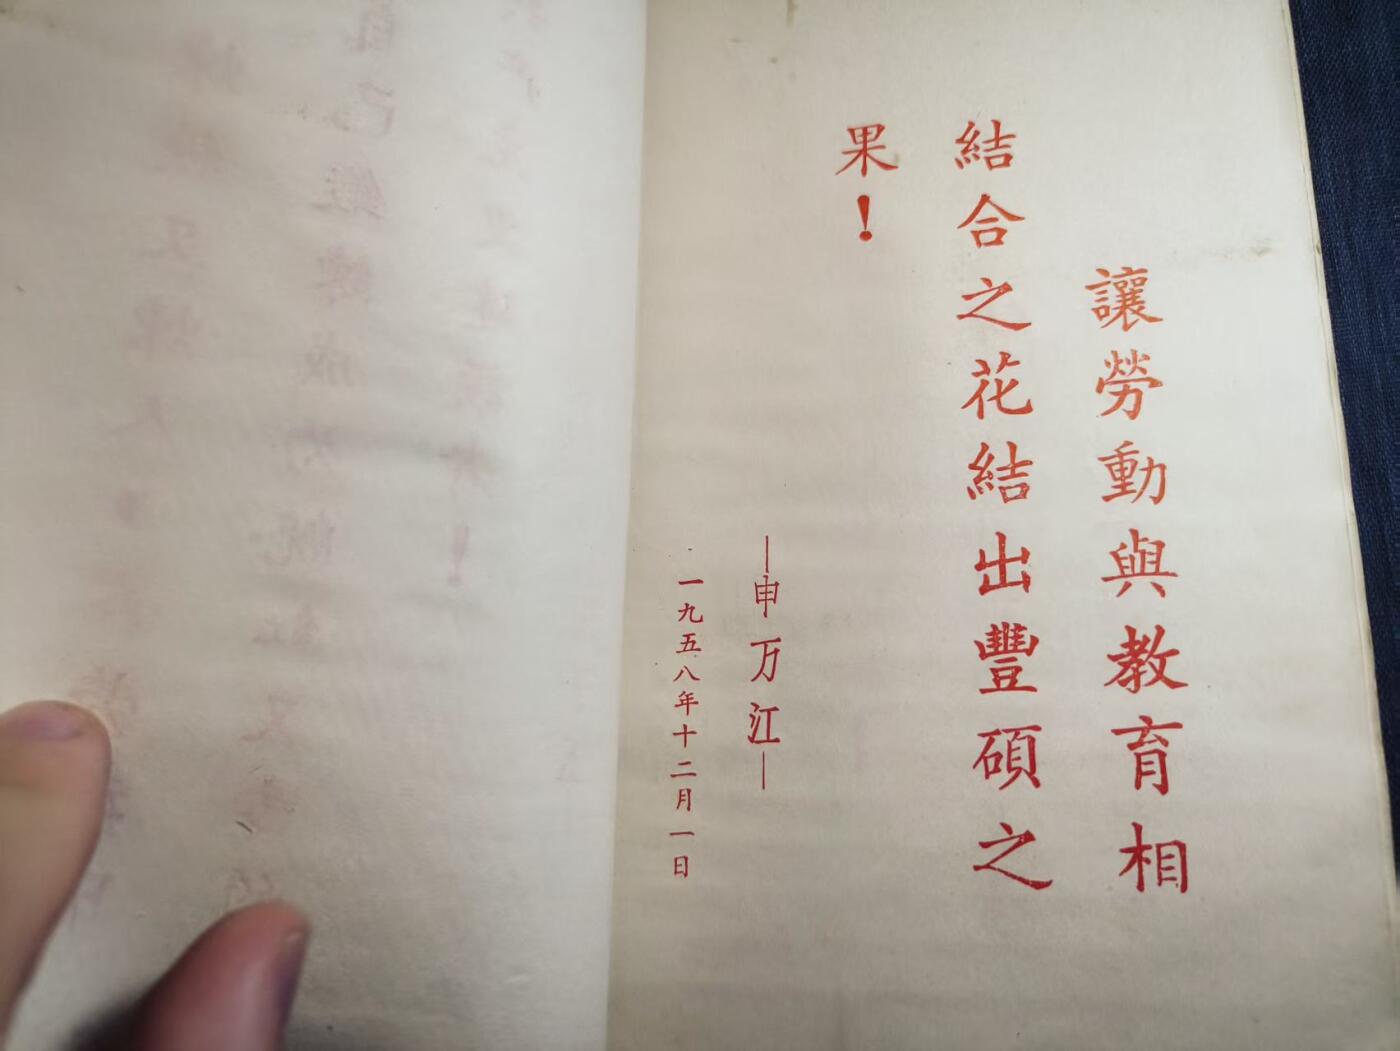 讓勞動與教育相
結合之花結出豐碩之
果！
—申万江—
一九五八年十二月一日